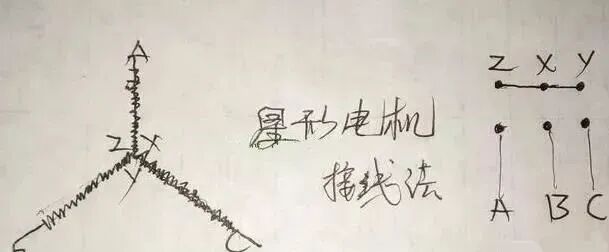 A
Z X
Y
C
星形电机
接线法
Z X Y
A B C